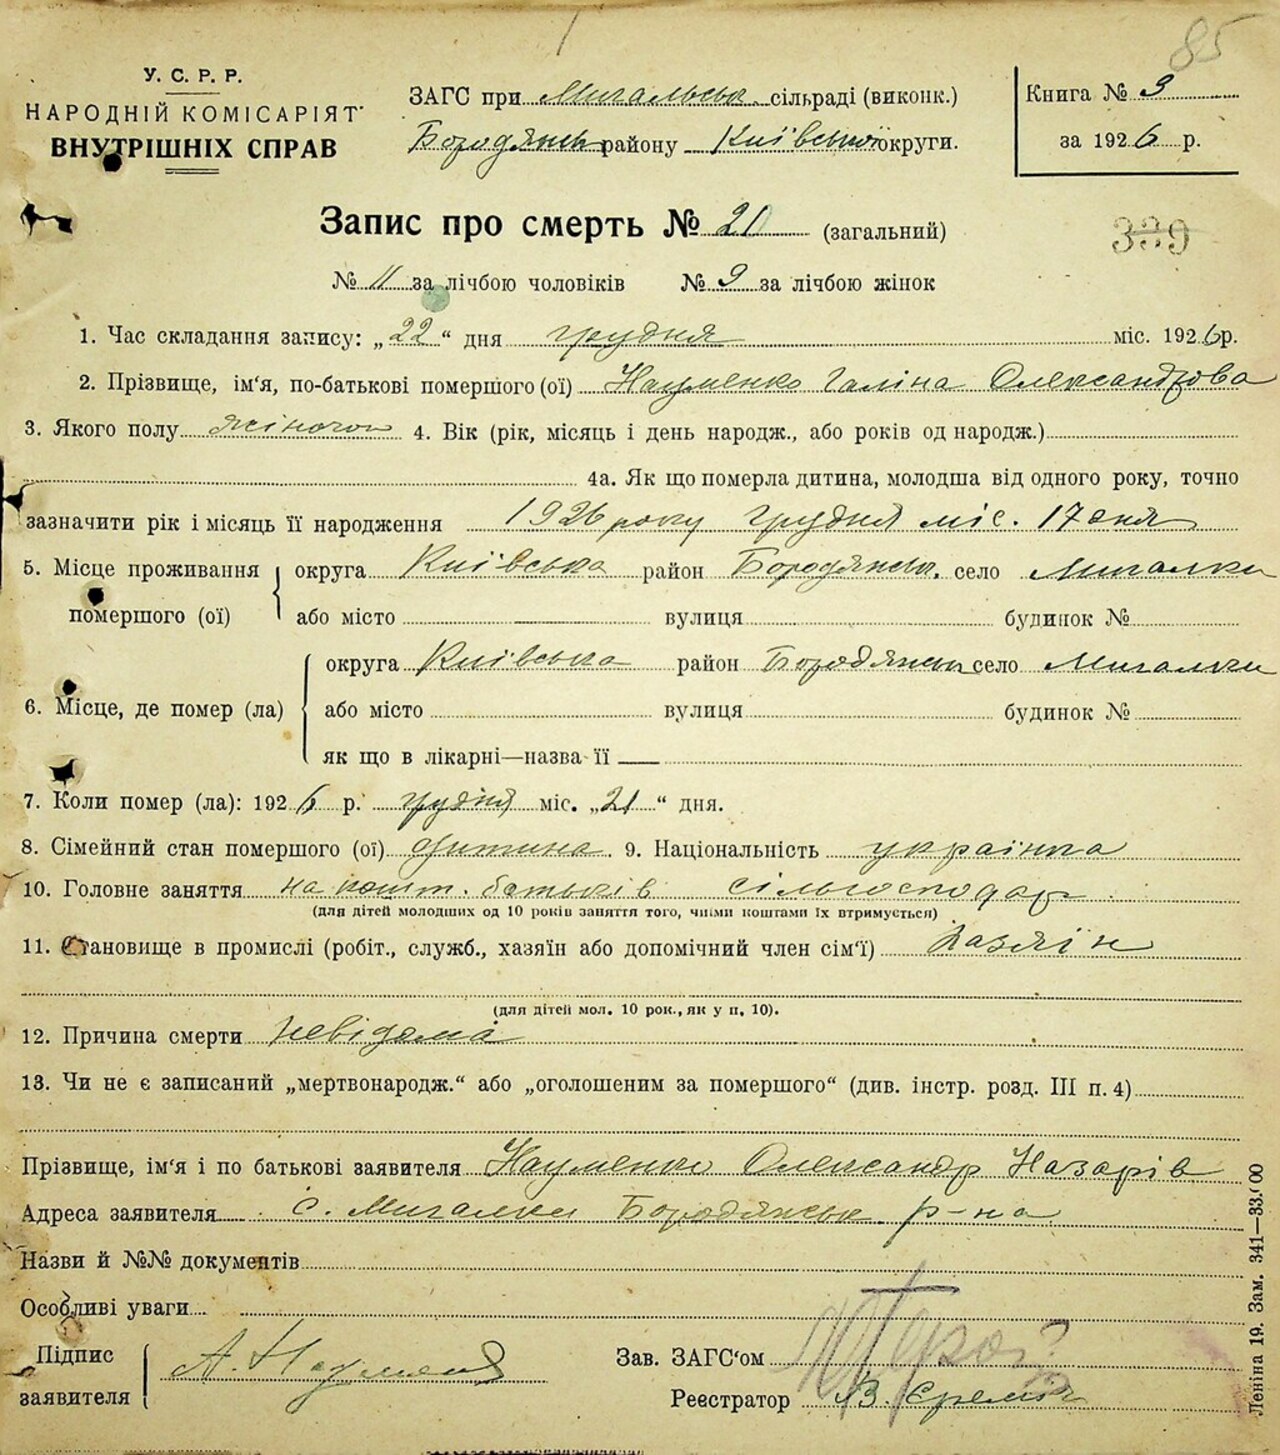 85
У. С. Р. Р.
НАРОДНІЙ КОМІСАРІЯТ
ВНУТРІШНІХ СПРАВ
ЗАГС при Мигальськ. сільраді (виконк.)
Бородянськ району Київської округи.
Книга № 3
за 1926 р.
Запис про смерть № 20 (загальний)
339
№ 11 за лічбою чоловіків № 9 за лічбою жінок
1. Час складання запису: „22“ дня грудня міс. 1926 р.
2. Прізвище, ім'я, по-батькові помершого (ої) Науменко Галіна Олександрова
3. Якого полу жіночої 4. Вік (рік, місяць і день народж., або років од народж.)
4а. Як що померла дитина, молодша від одного року, точно
зазначити рік і місяць її народження 1926 року грудня міс. 17 дня
5. Місце проживання помершого (ої) округа Київська район Бородянськ. село Мигалки
або місто вулиця будинок №
6. Місце, де помер (ла) округа Київська район Бородянськ село Мигалки
або місто вулиця будинок №
як що в лікарні—назва її —
7. Коли помер (ла): 1926 р. грудня міс. „21“ дня.
8. Сімейний стан помершого (ої) дитина 9. Національність українка
10. Головне заняття на кошт. батьків сільгосподар.
(для дітей молодших од 10 років заняття того, чиїми коштами їх втримується)
11. Становище в промислі (робіт., служб., хазяїн або допомічний член сім'ї) хазяїн
(для дітей мол. 10 рок., як у п. 10).
12. Причина смерти невідома
13. Чи не є записаний „мертвонародж.“ або „оголошеним за помершого“ (див. інстр. розд. III п. 4)
Прізвище, ім'я і по батькові заявителя Науменко Олександр Назарів
Адреса заявителя с. Мигалки Бородянськ р-на
Назви й №№ документів
Особливі уваги
Підпис заявителя А. Науменко
Зав. ЗАГС'ом
Реєстратор В.
Леніна 19. Зам. 341—33.000